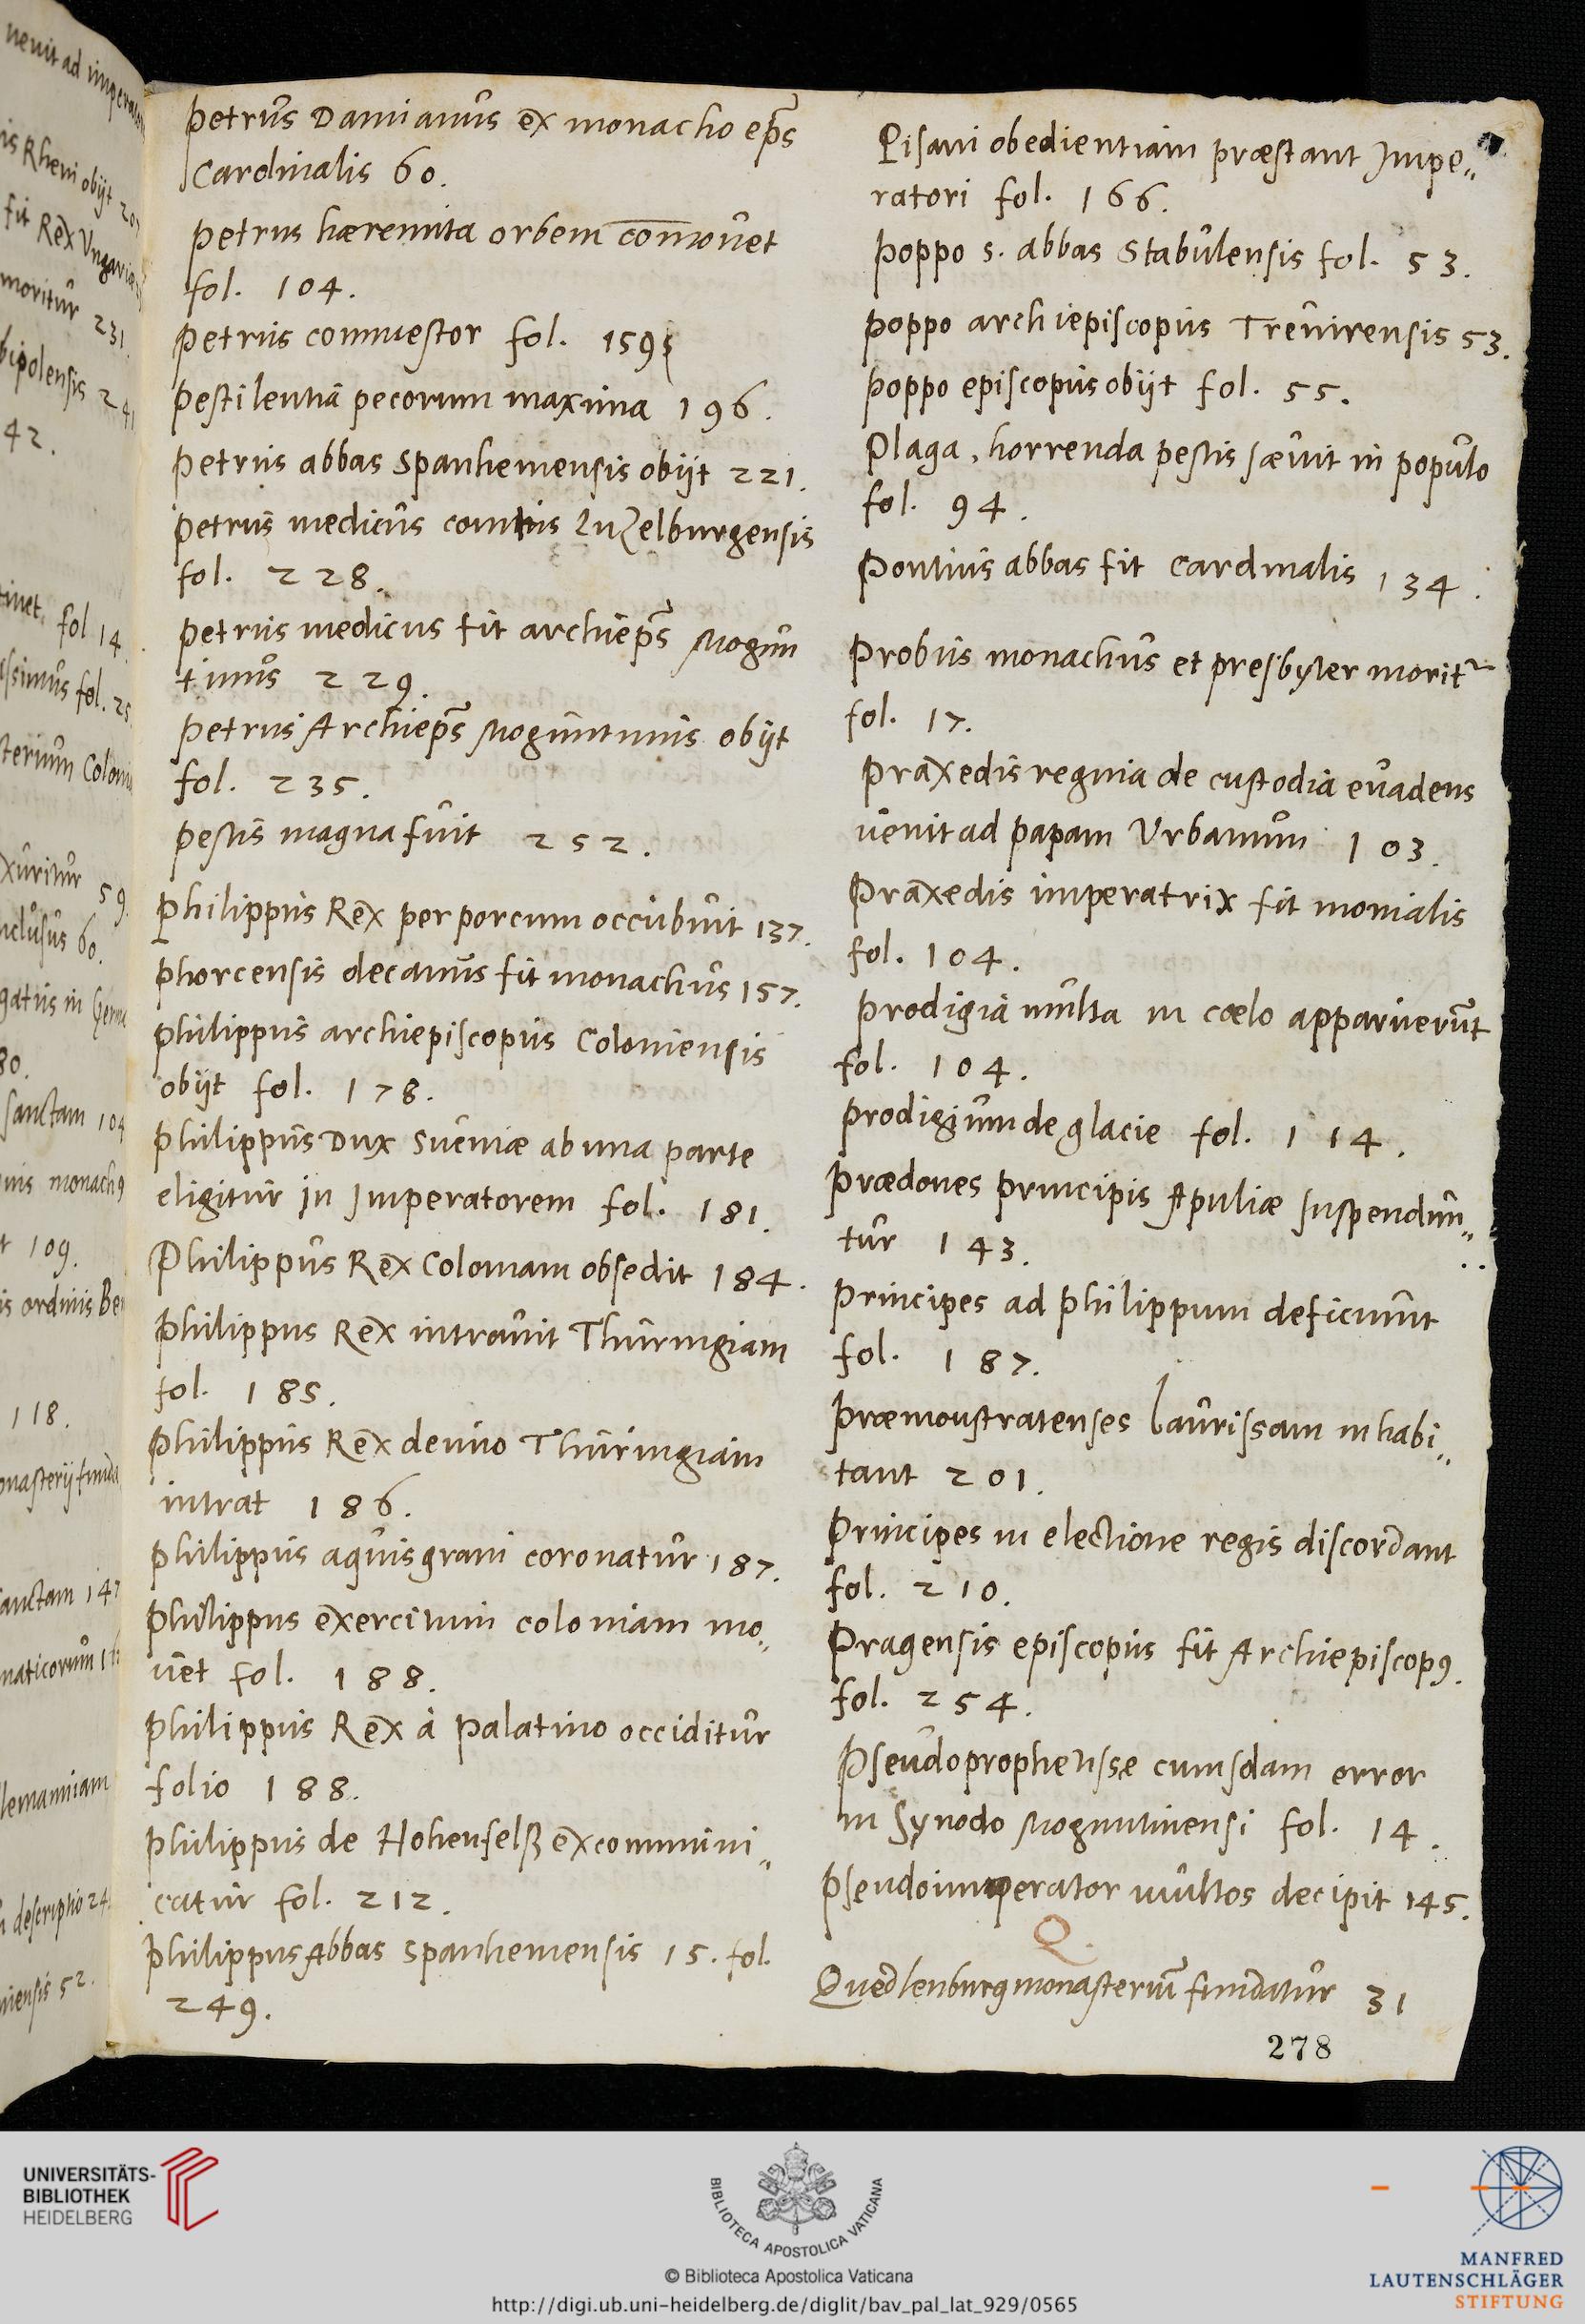 Petrus Damianus ex monacho eps̃
Cardinalis 60.
Petrus hæremita orbem com̃ouet
fol. 104.
Petrus commestor fol. 159
Pestilentia pecorum maxima 196.
Petrus abbas Spanhemensis obijt 221.
Petrus medicus comitis Luzelburgensis
fol. 228.
Petrus medicus fit archiep̃s Mogun
tinus 229.
Petrus Archiep̃s Moguntinus obijt
fol. 235.
Pestis magna fuit 252.
Philippus Rex per porcum occubuit 137.
Phorcensis decanus fit monachus 157.
Philippus archiepiscopus Coloniensis
obijt fol. 178.
Philippus Dux Sueuiæ ab una parte
eligitur in Imperatorem fol. 181.
Philippus Rex Coloniam obsedit 184.
Philippus Rex intrauit Thuringiam
fol. 185.
Philippus Rex denuo Thuringiam
intrat 186.
Philippus aquisgrani coronatur 187.
Philippus exercitum coloniam mo„
uet fol. 188.
Philippus Rex à Palatino occiditur
folio 188.
Philippus de Hohenfelß excommuni„
catur fol. 212.
Philippus Abbas Spanhemensis 15. fol.
249.
Pisani obedientiam præstant Impe„
ratori fol. 166.
Poppo s. abbas Stabulensis fol. 53.
Poppo archiepiscopus Treuirensis 53.
Poppo episcopus obijt fol. 55.
Plaga, horrenda pestis sæuit in populo
fol. 94.
Pontius abbas fit Cardinalis 134.
Probus monachus et presbyter morit᷑
fol. 17.
Praxedis regina de custodia euadens
uenit ad papam Vrbanum 103.
Praxedis imperatrix fit monialis
fol. 104.
Prodigia multa in cœlo apparuerũt
fol. 104.
Prodigium de glacie fol. 114.
Prædones principis Apuliæ suspendun„
tur 143.
Principes ad Philippum deficiunt
fol. 187.
Præmonstratenses Laurissam inhabi„
tant 201.
Principes in electione regis discordant
fol. 210.
Pragensis episcopus fit Archiepiscopꝰ.
fol. 254.
Pseudoprophetissæ cuiusdam error
in Synodo Moguntinensi fol. 14.
Pseudoimperator multos decipit 145.
Q.
Quedlenburg monasteriũ fundatur 31
278
UNIVERSITÄTS-
BIBLIOTHEK
HEIDELBERG
BIBLIOTECA APOSTOLICA VATICANA
© Biblioteca Apostolica Vaticana
http://digi.ub.uni-heidelberg.de/diglit/bav_pal_lat_929/0565
MANFRED
LAUTENSCHLÄGER
STIFTUNG